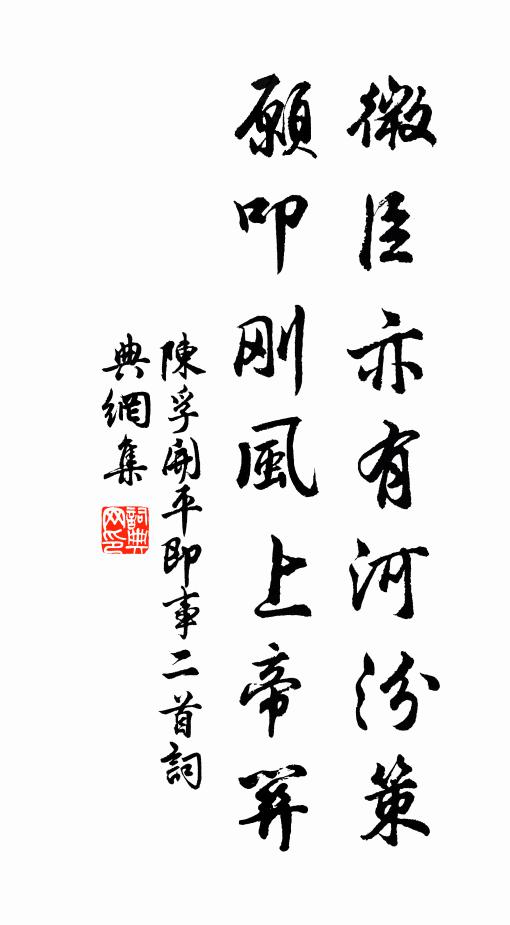 微臣亦有河汾策
願叩剛風上帝關
陳孚開平即事二首詞
典網集
詞典
网印